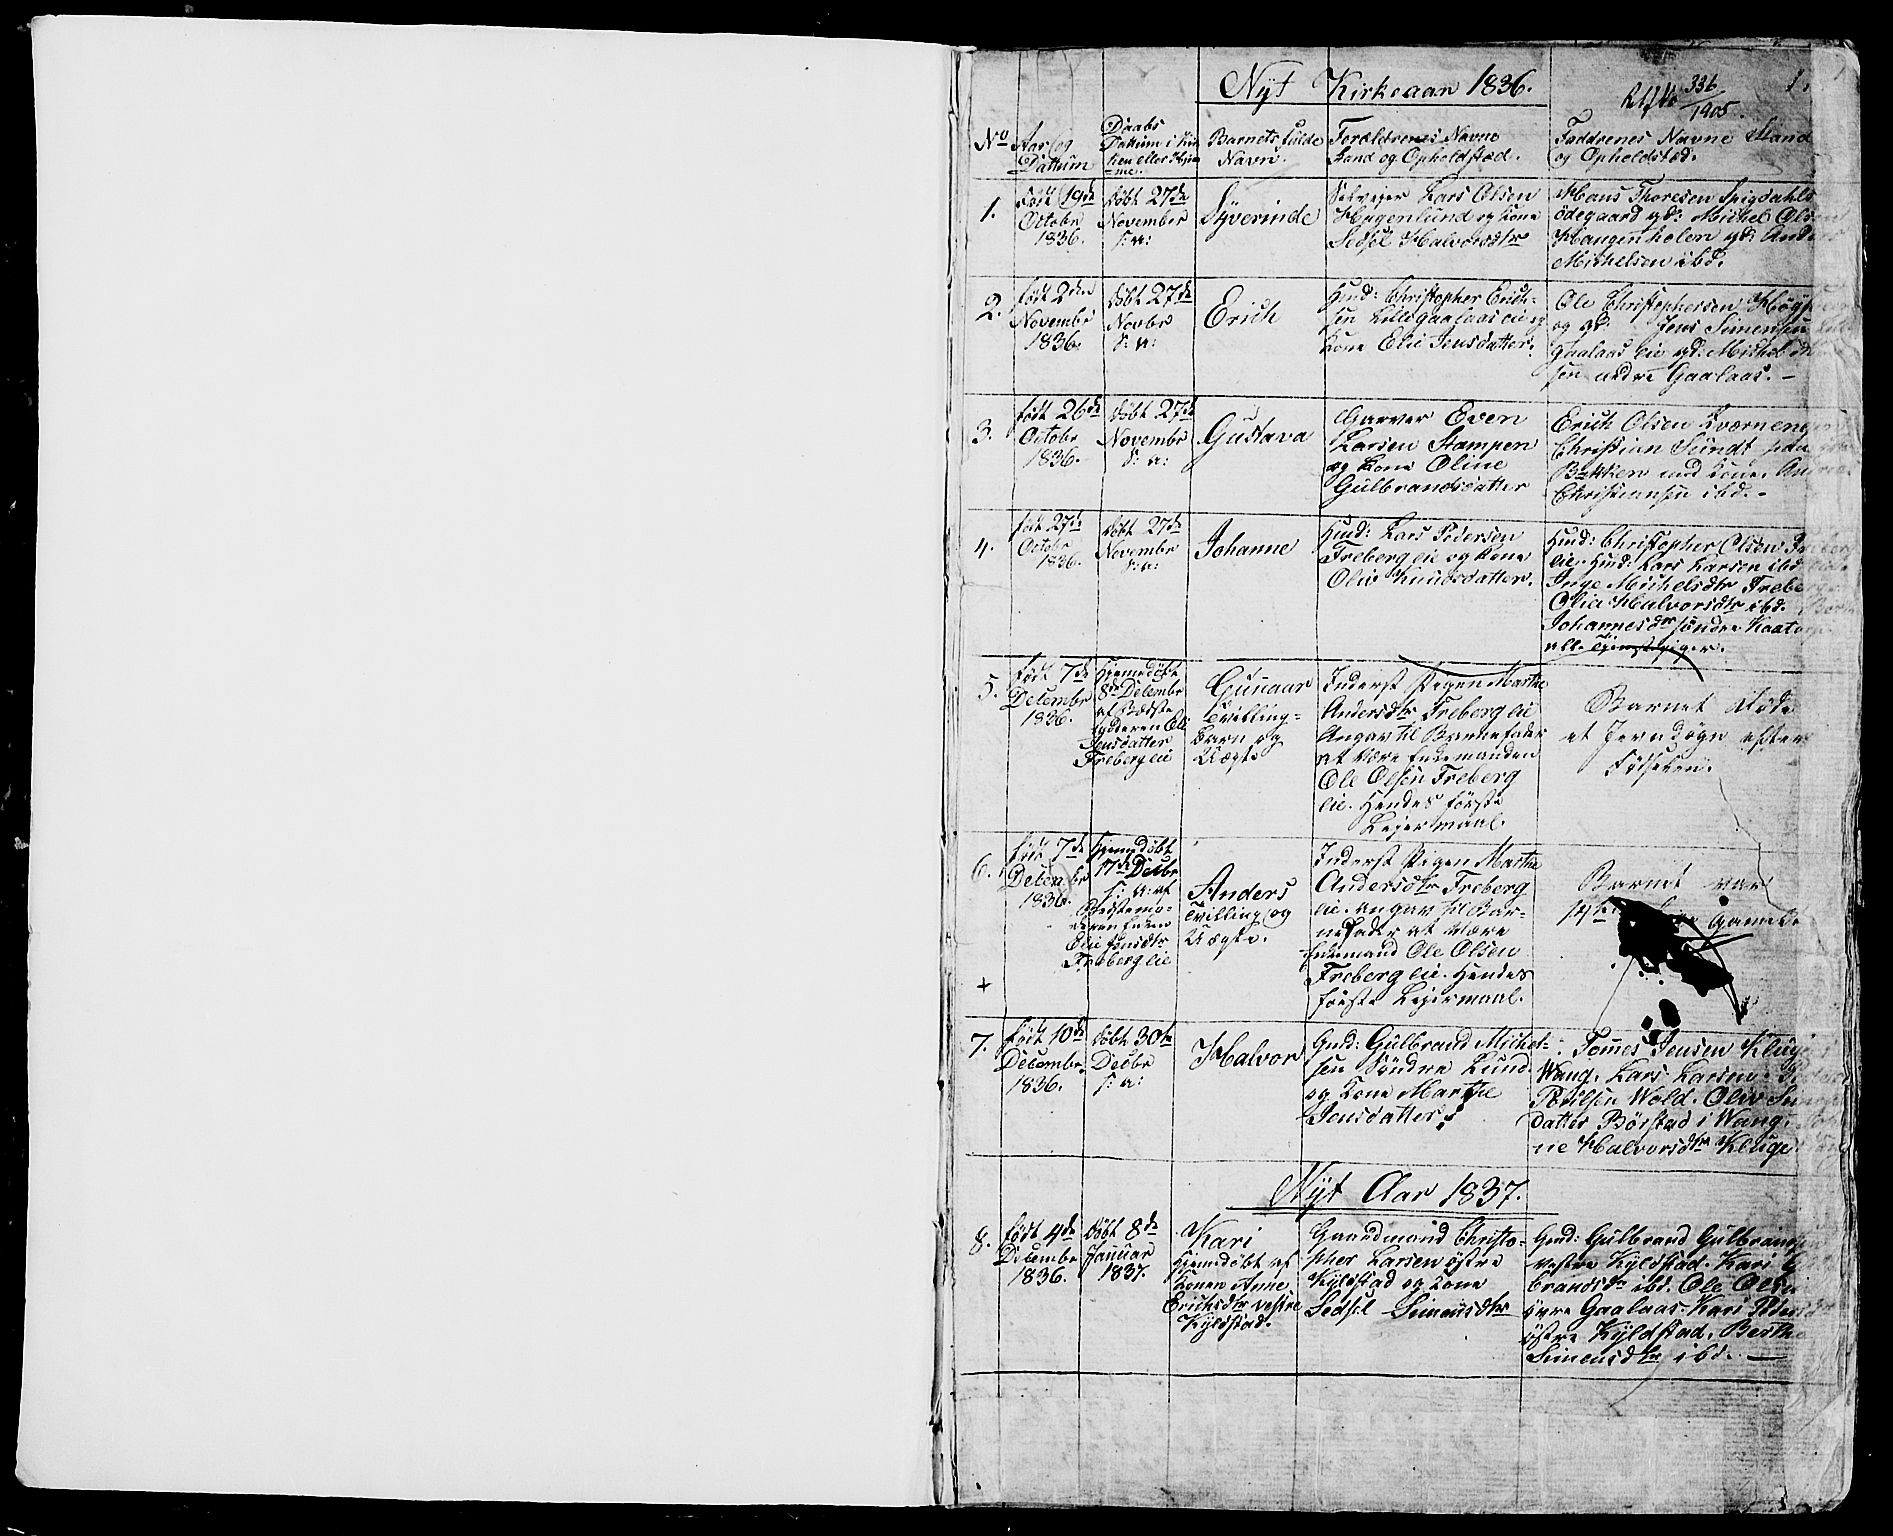 Nyt Kirkeaar 1836.
336
1905.
1.
No
Aar og
Dattum
Daabs
Dattum i Kir
ken eller Hjem
me.
Barnets fulde
Navn.
Forældrenes Navne
Stand og Opholdsted.
Faddrenes Navne Stand
og Opholdsted.
1.
født 19de
Octobr
1836.
døbt 27de
November
s: a:
Syverinde
Selveier Lars Olsen
Hagenlund og Kone
Sedsel Halvorsdtr
Hans Thoresen Spigdahls
ödegaard gd: Michel Olsen
Haugenholen gd: Anders
Michelsen ibd.
2.
født 2den
Novembr
1836.
døbt 27de
Novbr
s: a:
Erich
Huusd: Christopher Erich-
sen Lillegaalaas eie og
Kone Elie Jensdatter.
Ole Christophersen
og gd: Jens Simensen
Gaalaas eie gd: Michel
sen nedre Gaalaas. -
3.
født 26de
Octobr
1836.
døbt 27de
Novembr
s: a:
Gustava
Garver Even
Larsen Stampen
og Kone Oline
Gulbrandsdatter
Erich Olsen Kværnengen
Christian Sundt
Bakken med Kone.
Christiansen ibd. -
4.
født 27de
Octobr
1836.
døbt 27de
Novembr
s: a:
Johanne
Huusd: Lars Pedersen
Freberg eie og Kone
Olia Knudsdatter.
Huusd: Christopher Olsen Freberg
eie. Huusd: Lars Larsen ibd
Inge Michelsdtr Freberg
Olia Halvorsdtr ibd.
Johannesdtr søndre Kaatorp
alle Tjenstpiger.
5.
født 7de
Decembr
1836.
Hjemmedöbt
8de Decembr
af Bedste
Elie
Jensdatter
Freberg eie
Gunnar
Tvilling-
Barn og
Uægte
Inderst Pigen Marthe
Andersdtr Freberg eie
Angav til Barnefader
at være Enkemanden
Ole Olsen Freberg
eie. Hendes første
Lejermaal.
Barnet døde
et Jevndøgn efter
Fødselen.
6.
født 7de
Decembr
1836.
Hjemmedöbt
17de Decbr
s: a: af
Bedstemo-
deren Enken
Elie Jensdtr
Freberg eie
Anders
Tvilling og
Uægte.
Inderst Pigen Marthe
Andersdtr Freberg
eie. angav til Bar-
nefader at være
Enkemand Ole Olsen
Freberg eie. Hendes
første Lejermaal.
Barnet var
14
7.
født 10de
Decembr
1836.
döbt 30te
Decbr
s: a:
Halvor
Gmd: Gulbrand Michel-
sen Söndre Lund
og Kone Marthe
Jensdatter.
Tomes Jensen Kluge
Wang. Lars Larsen
Poulsen Wold. Oliv
datter Börstad i Wang.
ne Halvorsdtr Kluge
Nyt Aar 1837.
8.
født 4de
Decembr
1836.
döbt 8de
Januar
1837.
Kari
Hjemdøbt af
Konen Anne
Erichsdtr vestre
Kyldstad.
Gaardmand Christo-
pher Larsen østre
Kyldstad og Kone
Sedsel Simensdtr
Gmd: Gulbrand Gulbrandsen
vestre Kyldstad. Kari
brandsdtr ibd. Ole Olsen
Gaalaas. Kari
østre Kyldstad. Berthe
Simensdtr ibd. —